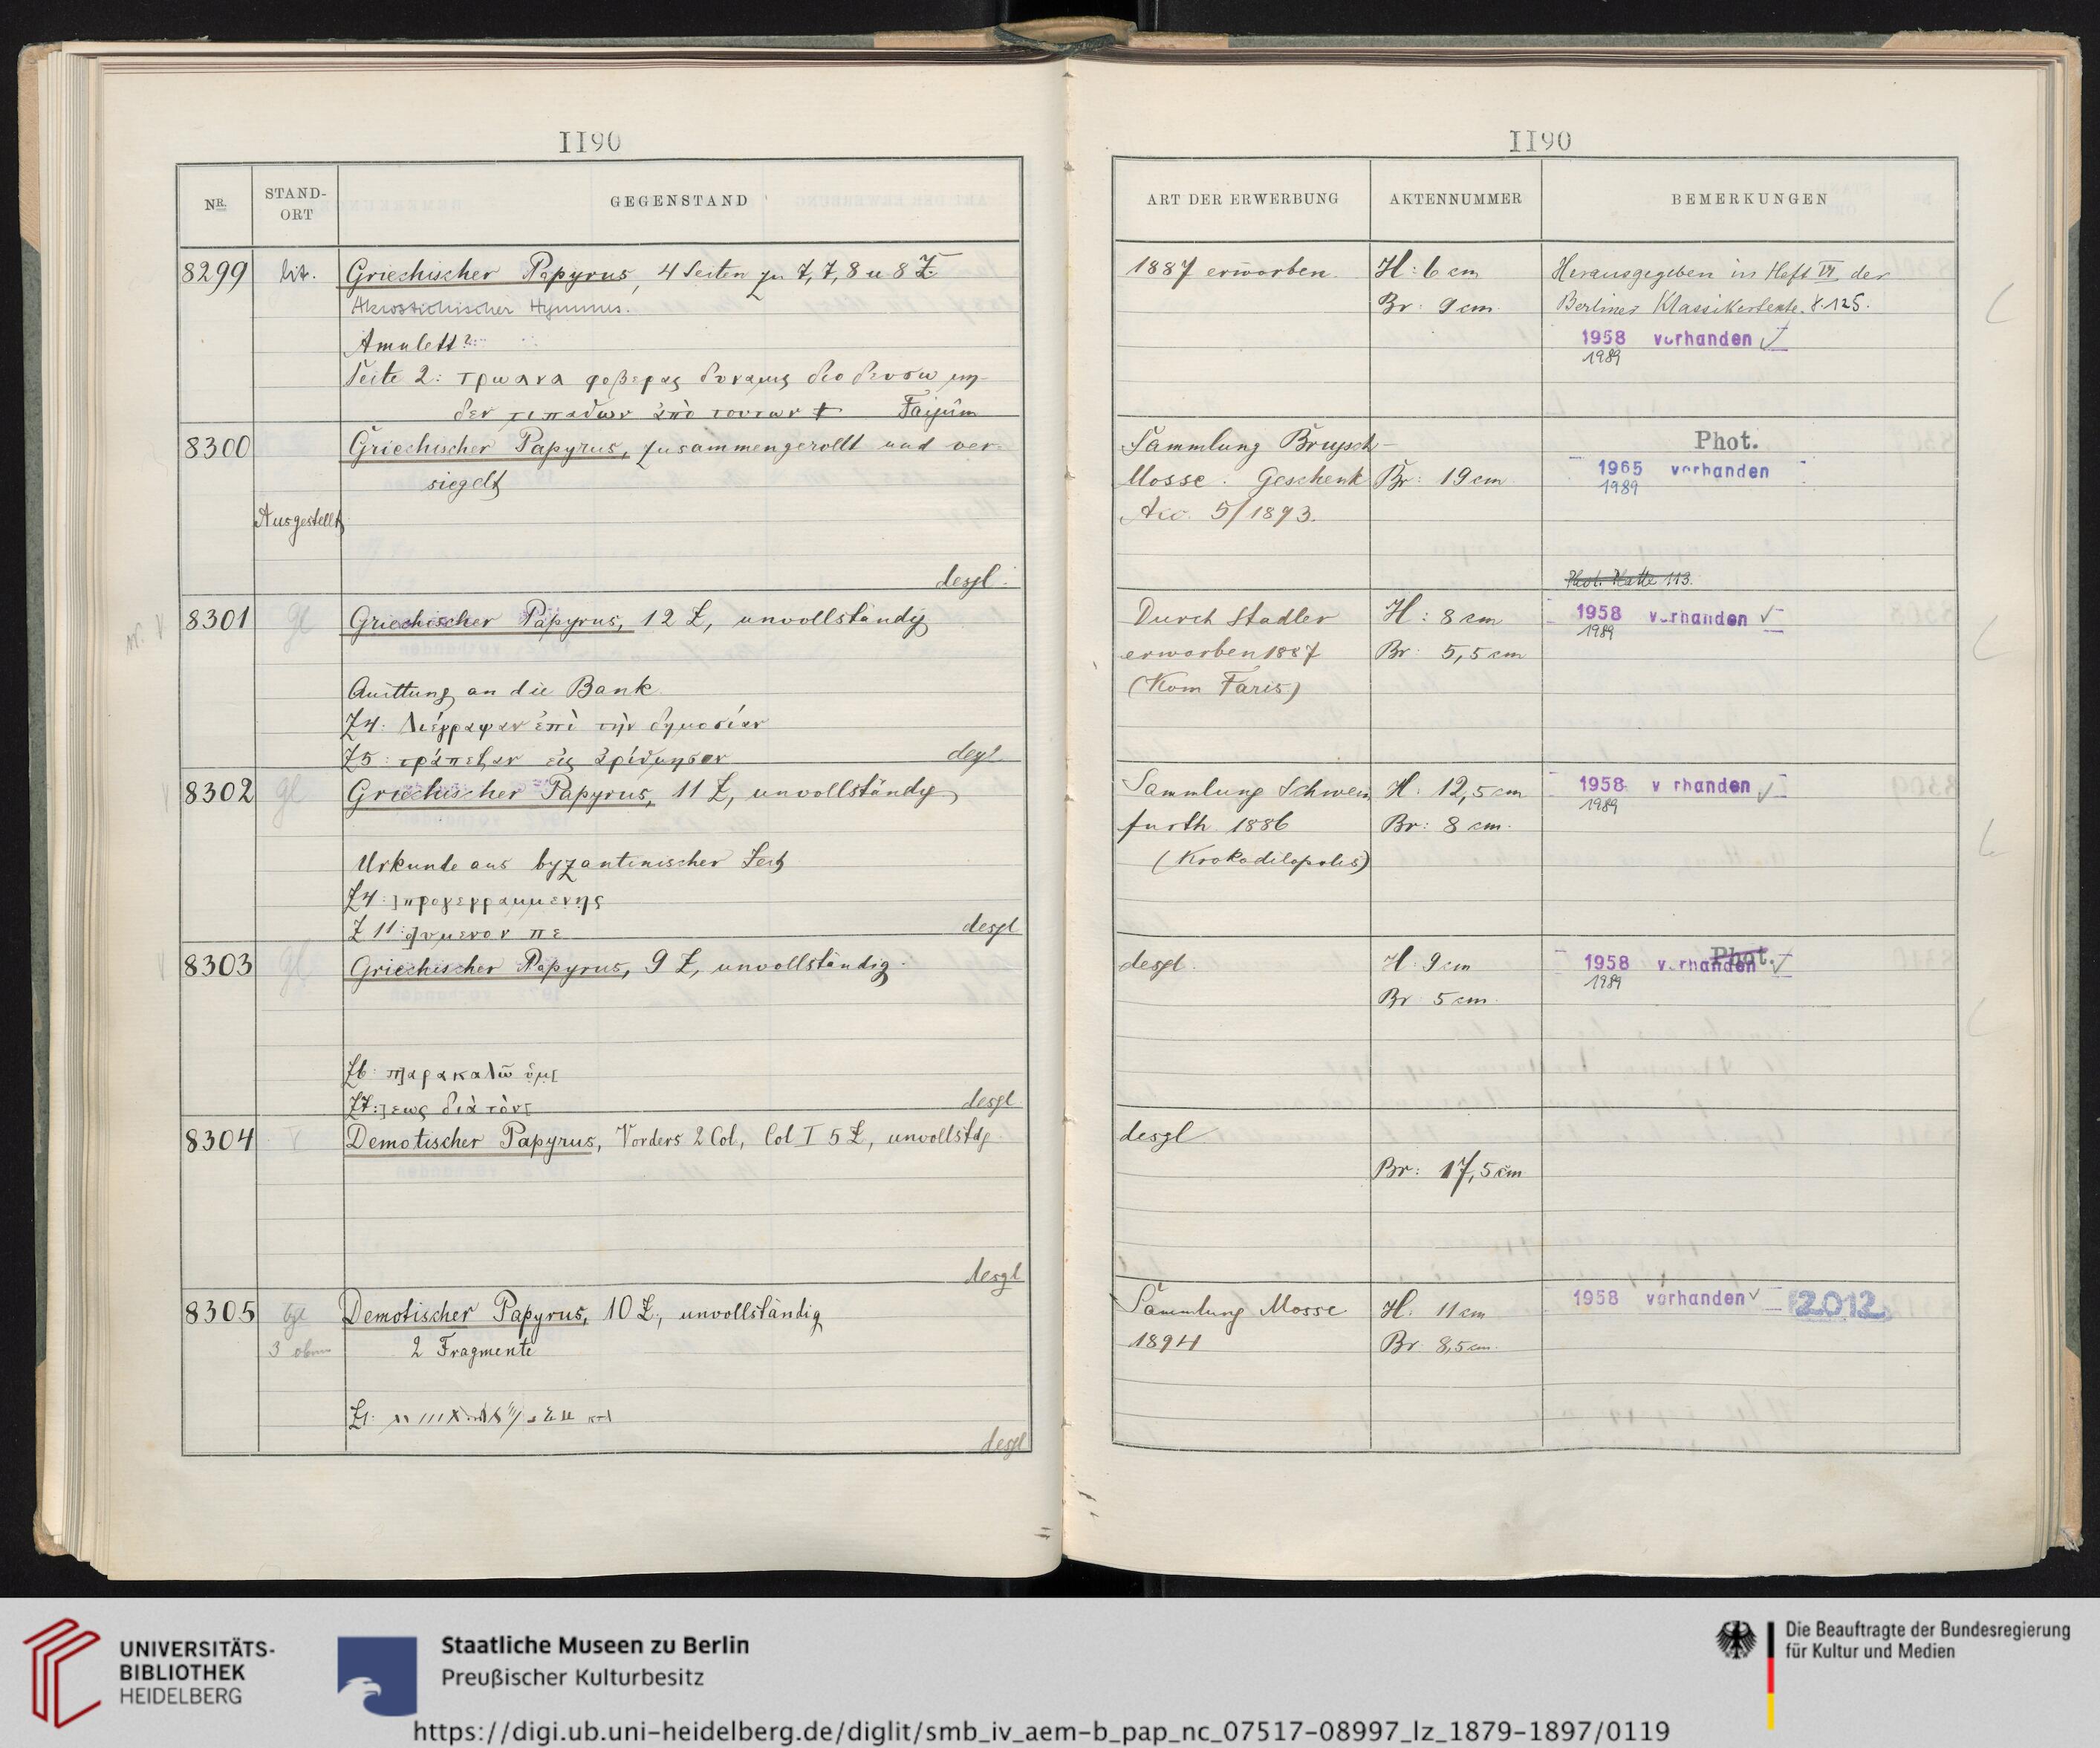 1190
NR.
STAND-
ORT
GEGENSTAND
8299 lit. Griechischer Papyrus, 4 Seiten zu 7, 7, 8 u 8 Z.
Akrostichischer Hymnus.
Amulett?
Seite 2:
Faijûm
8300 Griechischer Papyrus, zusammengerollt und ver-
siegelt
Ausgestellt
desgl.
8301 gl Griechischer Papyrus, 12 Z, unvollständig
Quittung an die Bank
Z4: Διέγραψαν ἐπὶ τὴν δημοσίαν
Z5: τράπεζαν εἰς ἀρίθμησιν desgl
8302 gl Griechischer Papyrus, 11 Z, unvollständig
Urkunde aus byzantinischer Zeit
Z4: ]προγεγραμμενης
Z 11: desgl
8303 gl Griechischer Papyrus, 9 Z, unvollständig.
Z6: π]αρακαλῶ ὑμ[
Z7: ]εως διὰ τὸν[ desgl
8304 V Demotischer Papyrus, Vorders 2 Col, Col I 5 Z, unvollstdg.
desgl
8305 Demotischer Papyrus, 10 Z, unvollständig
3 2 Fragmente
Z1:
desgl
1190
ART DER ERWERBUNG
AKTENNUMMER
BEMERKUNGEN
1887 erworben. H: 6 cm Herausgegeben in Heft VI der
Br: 9 cm Berliner Klassikertexte. S. 125.
1958 vorhanden ✓
1989
Sammlung Brugsch- Phot.
Mosse. Geschenk Br: 19 cm 1965 vorhanden
1989
Acc. 5/1893.
Phot. Platte 113.
Durch Stadler H: 8 cm 1958 vorhanden ✓
1989
erworben 1887 Br: 5,5 cm
(Kom Faris)
Sammlung Schwein H: 12,5 cm 1958 v rhanden ✓
1989
furth 1886 Br: 8 cm.
(Krokodilopolis)
desgl. H: 9 cm 1958 vorhanden Phot. ✓
1989
Br 5 cm.
desgl
Br: 17,5 cm
Sammlung Mosse H: 11 cm 1958 vorhanden ✓ 2012
1894 Br. 8,5 cm.
UNIVERSITÄTS-
BIBLIOTHEK
HEIDELBERG
Staatliche Museen zu Berlin
Preußischer Kulturbesitz
Die Beauftragte der Bundesregierung
für Kultur und Medien
https://digi.ub.uni-heidelberg.de/diglit/smb_iv_aem-b_pap_nc_07517-08997_lz_1879-1897/0119